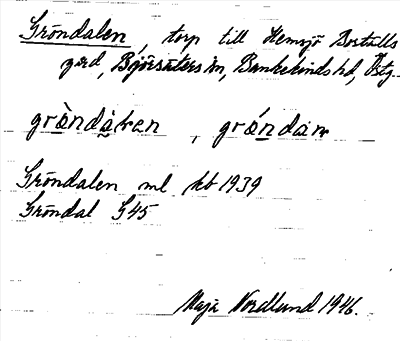 Gröndalen, torp till Hemsjö Boställs
gård, Björsäters sn, Bankekinds hd, Östg.
grö̀ndà̱ḷen, grö́ndaṇ
Gröndalen ml kb 1939
Gröndal G45
Maja Nordlund 1946.